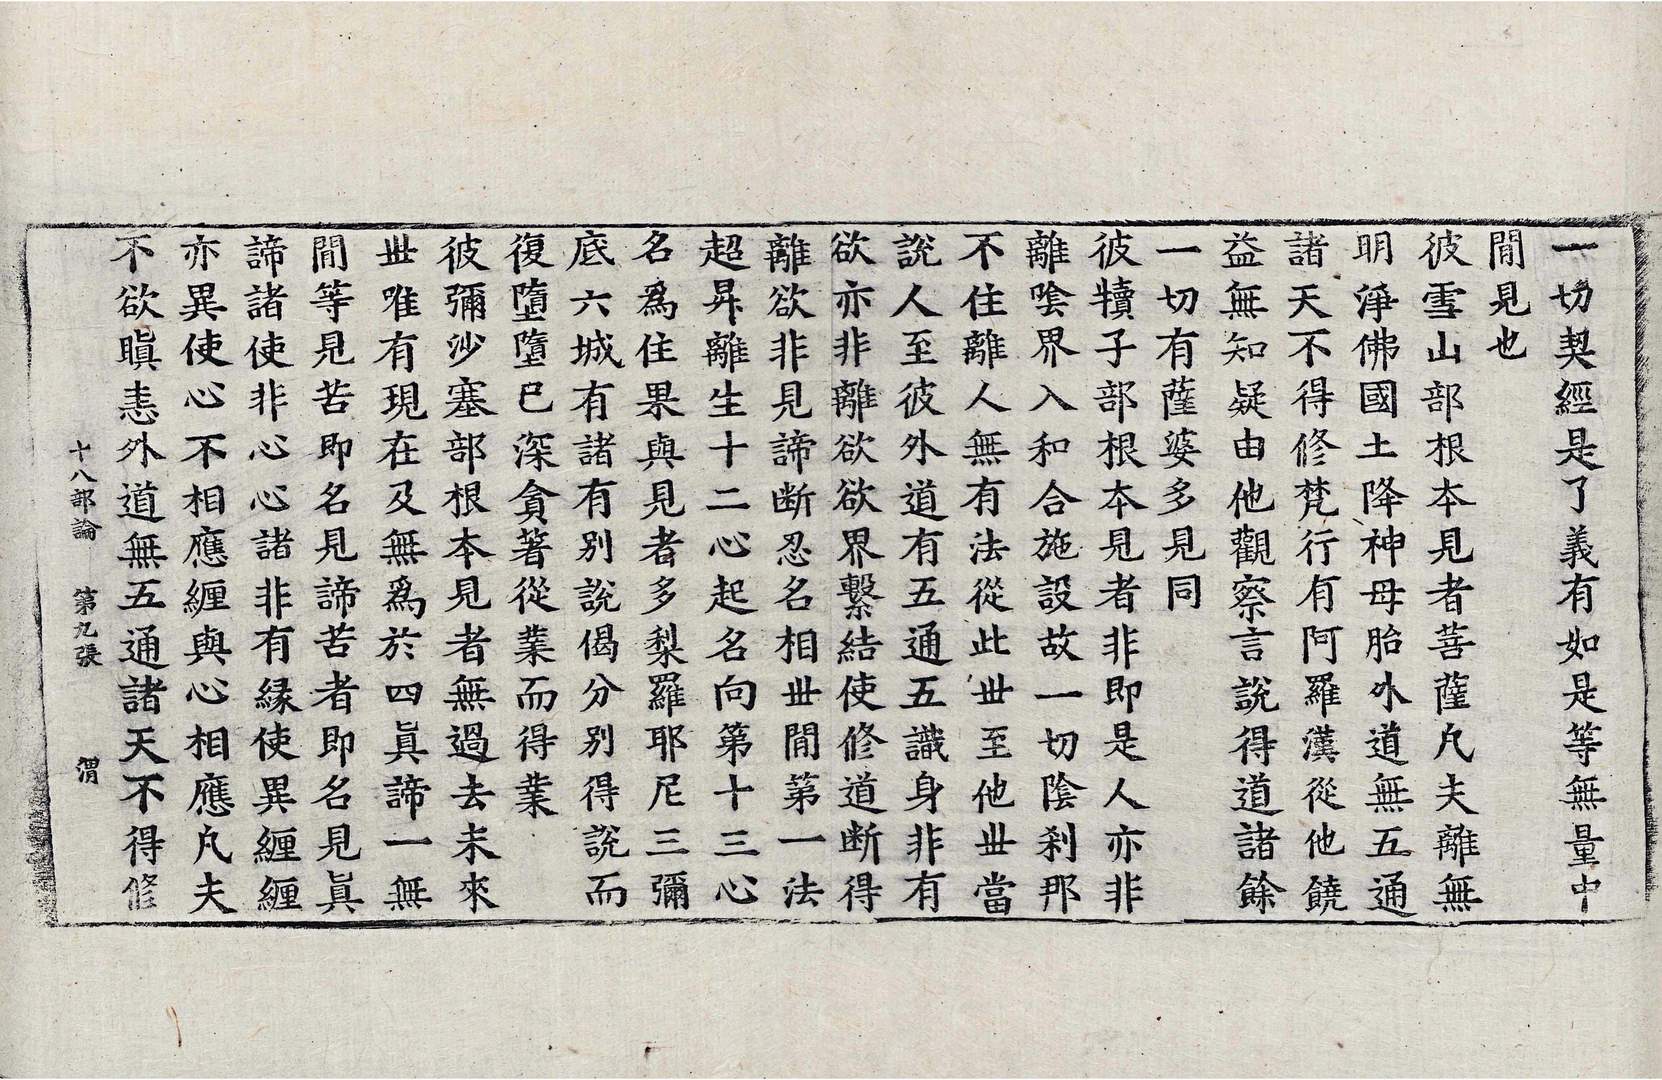 一切契經是了義有如是等無量中
閒見也
彼雪山部根本見者菩薩凡夫離無
明淨佛國土降神母胎外道無五通
諸天不得修梵行有阿羅漢從他饒
益無知疑由他觀察言說得道諸餘
一切有薩婆多見同
彼犢子部根本見者非即是人亦非
離陰界入和合施設故一切陰剎那
不住離人無有法從此丗至他丗當
說人至彼外道有五通五識身非有
欲亦非離欲欲界繫結使修道断得
離欲非見諦断忍名相丗閒第一法
超昇離生十二心起名向第十三心
名爲住果與見者多梨羅耶尼三彌
底六城有諸有別說偈分別得說而
復墮墮已深貪著從業而得業
彼彌沙塞部根本見者無過去未來
丗唯有現在及無爲於四真諦一無
閒等見苦即名見諦苦者即名見真
諦諸使非心心諸非有緣使異纏纏
亦異使心不相應纏與心相應凡夫
不欲瞋恚外道無五通諸天不得修
十八部論 第九張 渭